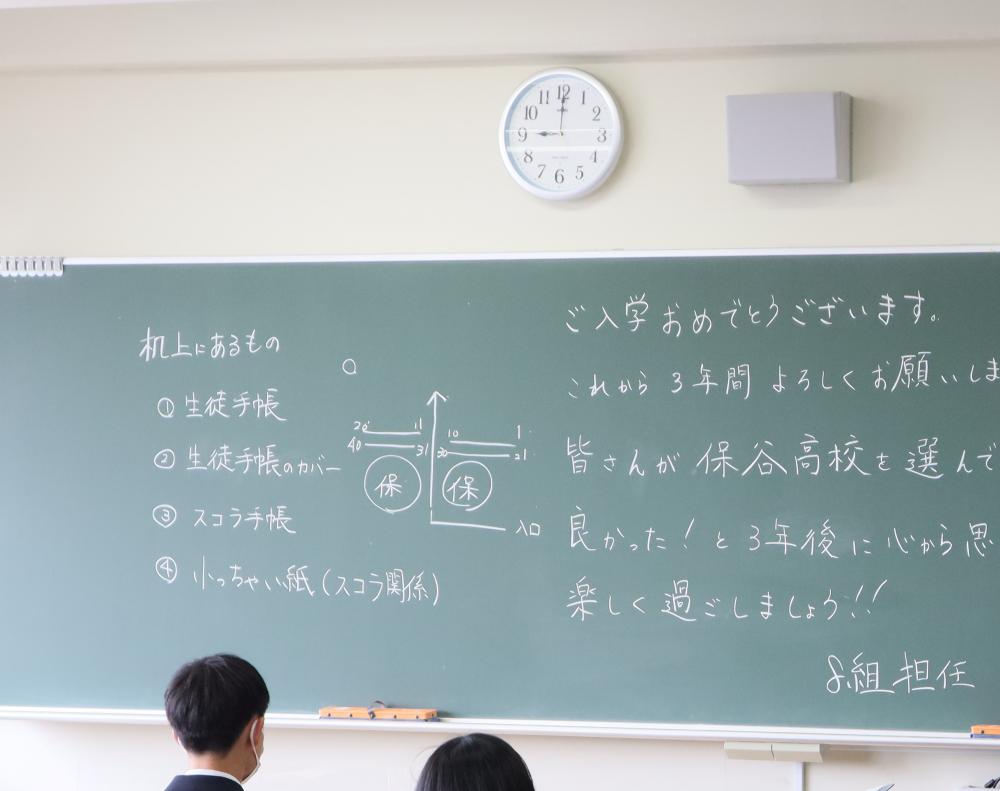 12
1
2
3
4
5
6
7
8
9
10
11
机上にあるもの
① 生徒手帳
② 生徒手帳のカバー
③ スコラ手帳
④ 小っちゃい紙(スコラ関係)
20 11 10 1
40 31 30 21
保 保
入口
ご入学おめでとうございます。
これから3年間よろしくお願いしま
皆さんが保谷高校を選んで
良かった!と3年後に心から思
楽しく過ごしましょう!!
8組 担任